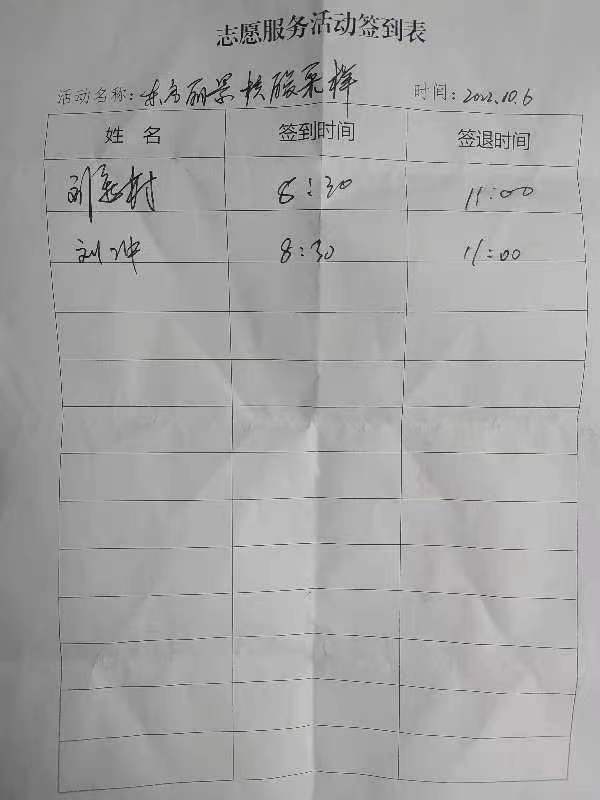 志愿服务活动签到表
活动名称：东方丽景核酸采样 时间：2022.10.6
姓 名 签到时间 签退时间
刘 8:30 11:00
刘冲 8:30 11:00